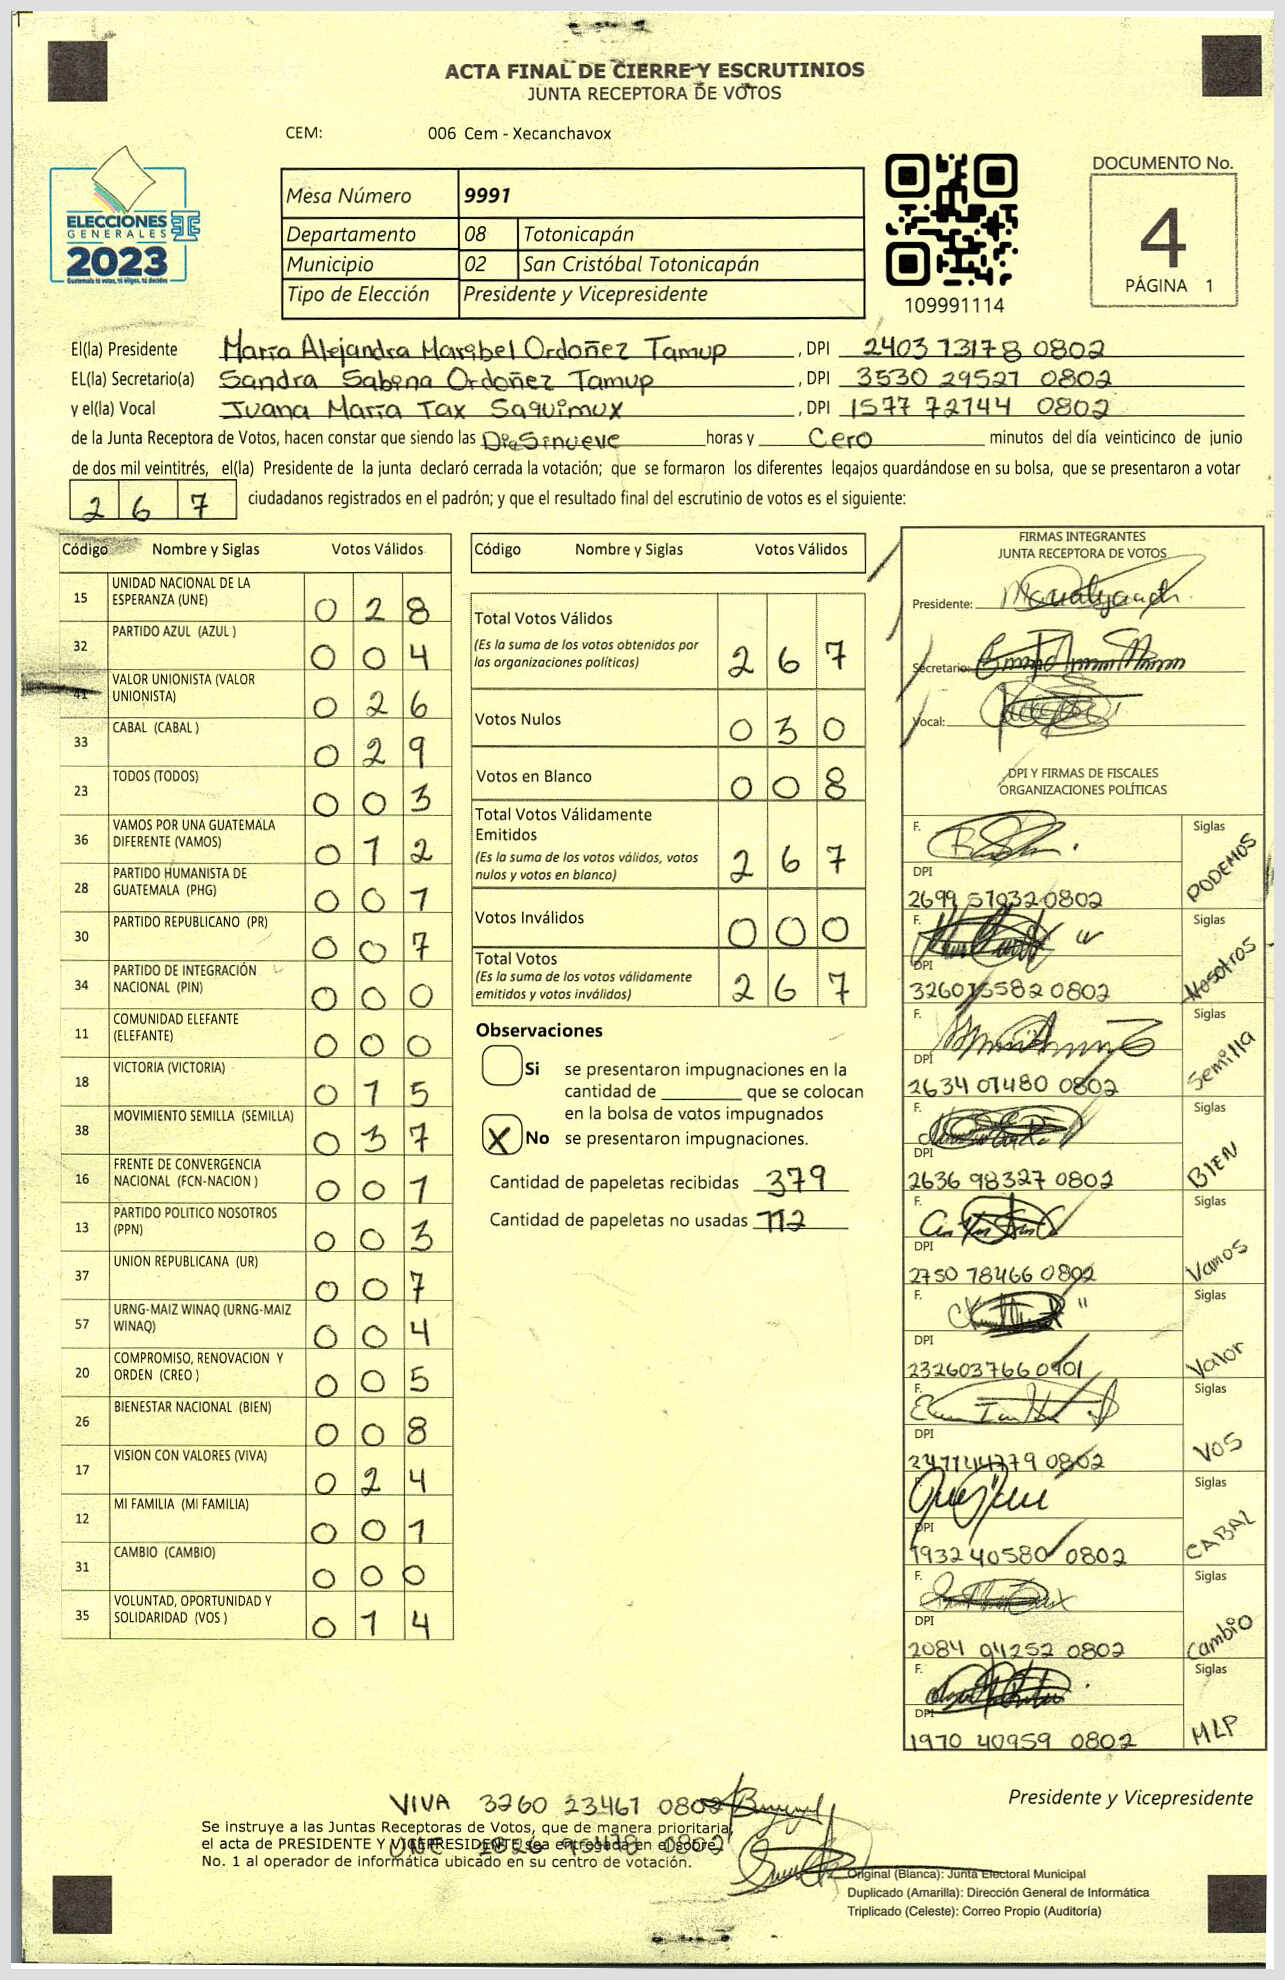 ACTA FINAL DE CIERRE Y ESCRUTINIOS
JUNTA RECEPTORA DE VOTOS
CEM: 006 Cem - Xecanchavox
ELECCIONES
GENERALES
2023
Mesa Número 9991
Departamento 08 Totonicapán
Municipio 02 San Cristóbal Totonicapán
Tipo de Elección Presidente y Vicepresidente
109991114
DOCUMENTO No.
4
PÁGINA 1
El(la) Presidente María Alejandra Maribel Ordoñez Tamup, DPI 2403 73178 0802
EL(la) Secretario(a) Sandra Sabina Ordoñez Tamup, DPI 3530 29527 0802
y el(la) Vocal Juana María Tax Saquimux, DPI 1577 72744 0802
de la Junta Receptora de Votos, hacen constar que siendo las DieSinueve horas y Cero minutos del día veinticinco de junio
de dos mil veintitrés, el(la) Presidente de la junta declaró cerrada la votación; que se formaron los diferentes legajos guardándose en su bolsa, que se presentaron a votar
267 ciudadanos registrados en el padrón; y que el resultado final del escrutinio de votos es el siguiente:
Código Nombre y Siglas Votos Válidos
15 UNIDAD NACIONAL DE LA ESPERANZA (UNE) 028
32 PARTIDO AZUL (AZUL ) 004
41 VALOR UNIONISTA (VALOR UNIONISTA) 026
33 CABAL (CABAL ) 029
23 TODOS (TODOS) 003
36 VAMOS POR UNA GUATEMALA DIFERENTE (VAMOS) 012
28 PARTIDO HUMANISTA DE GUATEMALA (PHG) 001
30 PARTIDO REPUBLICANO (PR) 007
34 PARTIDO DE INTEGRACIÓN NACIONAL (PIN) 000
11 COMUNIDAD ELEFANTE (ELEFANTE) 000
18 VICTORIA (VICTORIA) 015
38 MOVIMIENTO SEMILLA (SEMILLA) 037
16 FRENTE DE CONVERGENCIA NACIONAL (FCN-NACION ) 001
13 PARTIDO POLITICO NOSOTROS (PPN) 003
37 UNION REPUBLICANA (UR) 007
57 URNG-MAIZ WINAQ (URNG-MAIZ WINAQ) 004
20 COMPROMISO, RENOVACION Y ORDEN (CREO ) 005
26 BIENESTAR NACIONAL (BIEN) 008
17 VISION CON VALORES (VIVA) 024
12 MI FAMILIA (MI FAMILIA) 001
31 CAMBIO (CAMBIO) 000
35 VOLUNTAD, OPORTUNIDAD Y SOLIDARIDAD (VOS ) 014
Código Nombre y Siglas Votos Válidos
Total Votos Válidos
(Es la suma de los votos obtenidos por las organizaciones políticas) 267
Votos Nulos 030
Votos en Blanco 008
Total Votos Válidamente Emitidos
(Es la suma de los votos válidos, votos nulos y votos en blanco) 267
Votos Inválidos 000
Total Votos
(Es la suma de los votos válidamente emitidos y votos inválidos) 267
Observaciones
Si se presentaron impugnaciones en la
cantidad de ________ que se colocan
en la bolsa de votos impugnados
X No se presentaron impugnaciones.
Cantidad de papeletas recibidas 379
Cantidad de papeletas no usadas 112
FIRMAS INTEGRANTES
JUNTA RECEPTORA DE VOTOS
Presidente:
Secretario:
Vocal:
DPI Y FIRMAS DE FISCALES
ORGANIZACIONES POLÍTICAS
F. Siglas
DPI PODEMOS
2699 57032 0802
F. Siglas
DPI Nosotros
3260 15582 0802
F. Siglas
DPI Semilla
2634 01480 0802
F. Siglas
DPI BIEN
2636 98327 0802
F. Siglas
DPI Vamos
2750 78466 0802
F. Siglas
DPI Valor
2326037660401
F. Siglas
DPI VOS
0802
F. Siglas
DPI CABAL
1932 40580 0802
F. Siglas
DPI Cambio
2084 94252 0802
F. Siglas
DPI MLP
1970 40959 0802
Presidente y Vicepresidente
VIVA 3260 23467 0802
Se instruye a las Juntas Receptoras de Votos, que de manera prioritaria,
el acta de PRESIDENTE Y VICEPRESIDENTE sea entregada en el sobre
UNE 0802
No. 1 al operador de informática ubicado en su centro de votación.
Original (Blanca): Junta Electoral Municipal
Duplicado (Amarilla): Dirección General de Informática
Triplicado (Celeste): Correo Propio (Auditoría)